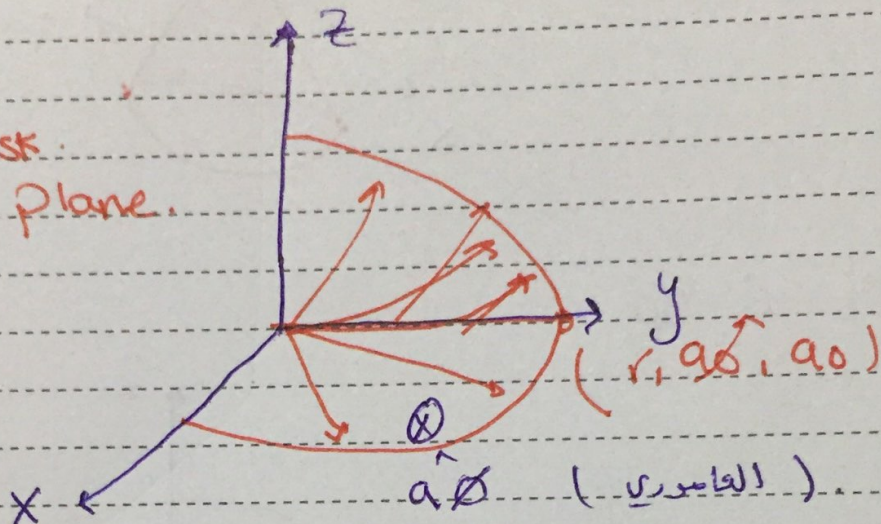 z
sk.
plane.
y
(r, 90, 90)
x
â Ø (العامودي).